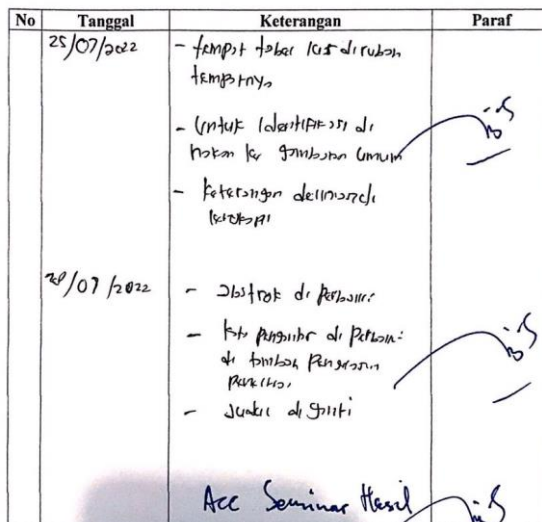 No Tanggal Keterangan Paraf
25/07/2022 - tempat tabel di rubah
tempatnya
- Untuk Identifikasi di
ke gambaran Umum
- keterangan
28/07/2022 - Abstrak di perbaiki
- kata pengantar di perbaiki
di tambah
- Judul di ganti
Acc Seminar Hasil